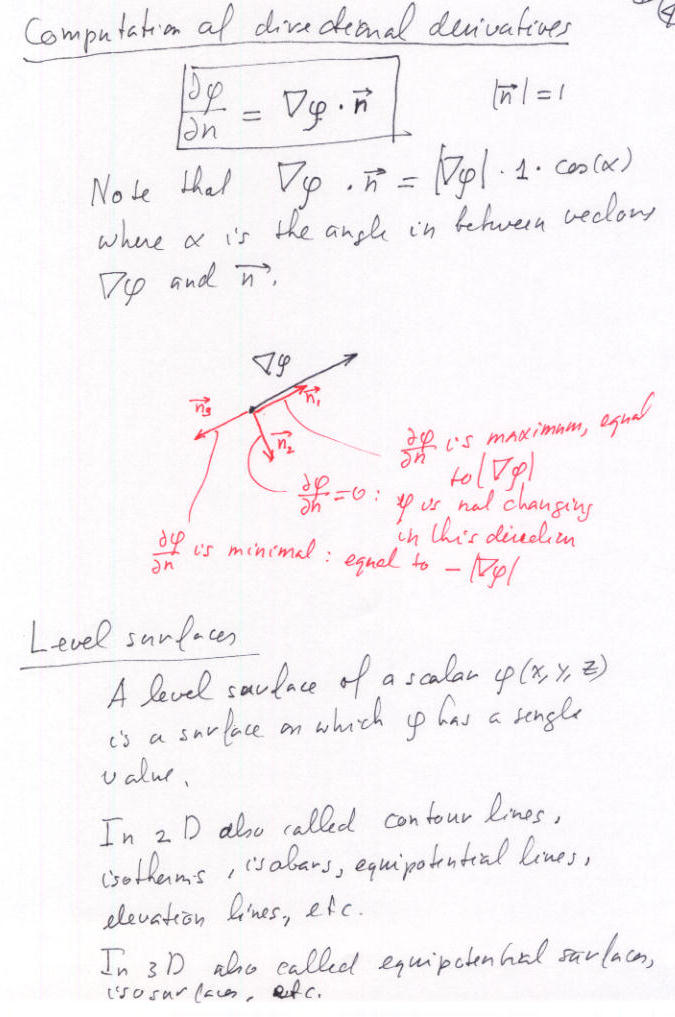 Computation of directional derivatives
∂φ/∂n = ∇φ · n⃗   |n⃗| = 1
Note that ∇φ · n⃗ = |∇φ| · 1 · cos(α)
where α is the angle in between vectors
∇φ and n⃗.
∇φ
n⃗₃ n⃗₁
n⃗₂
∂φ/∂n is maximum, equal
to |∇φ|
∂φ/∂n = 0 : φ is not changing
in this direction
∂φ/∂n is minimal : equal to - |∇φ|
Level surfaces
A level surface of a scalar φ(x, y, z)
is a surface on which φ has a single
value.
In 2D also called contour lines,
isotherms, isobars, equipotential lines,
elevation lines, etc.
In 3D also called equipotential surfaces,
isosurfaces, etc.